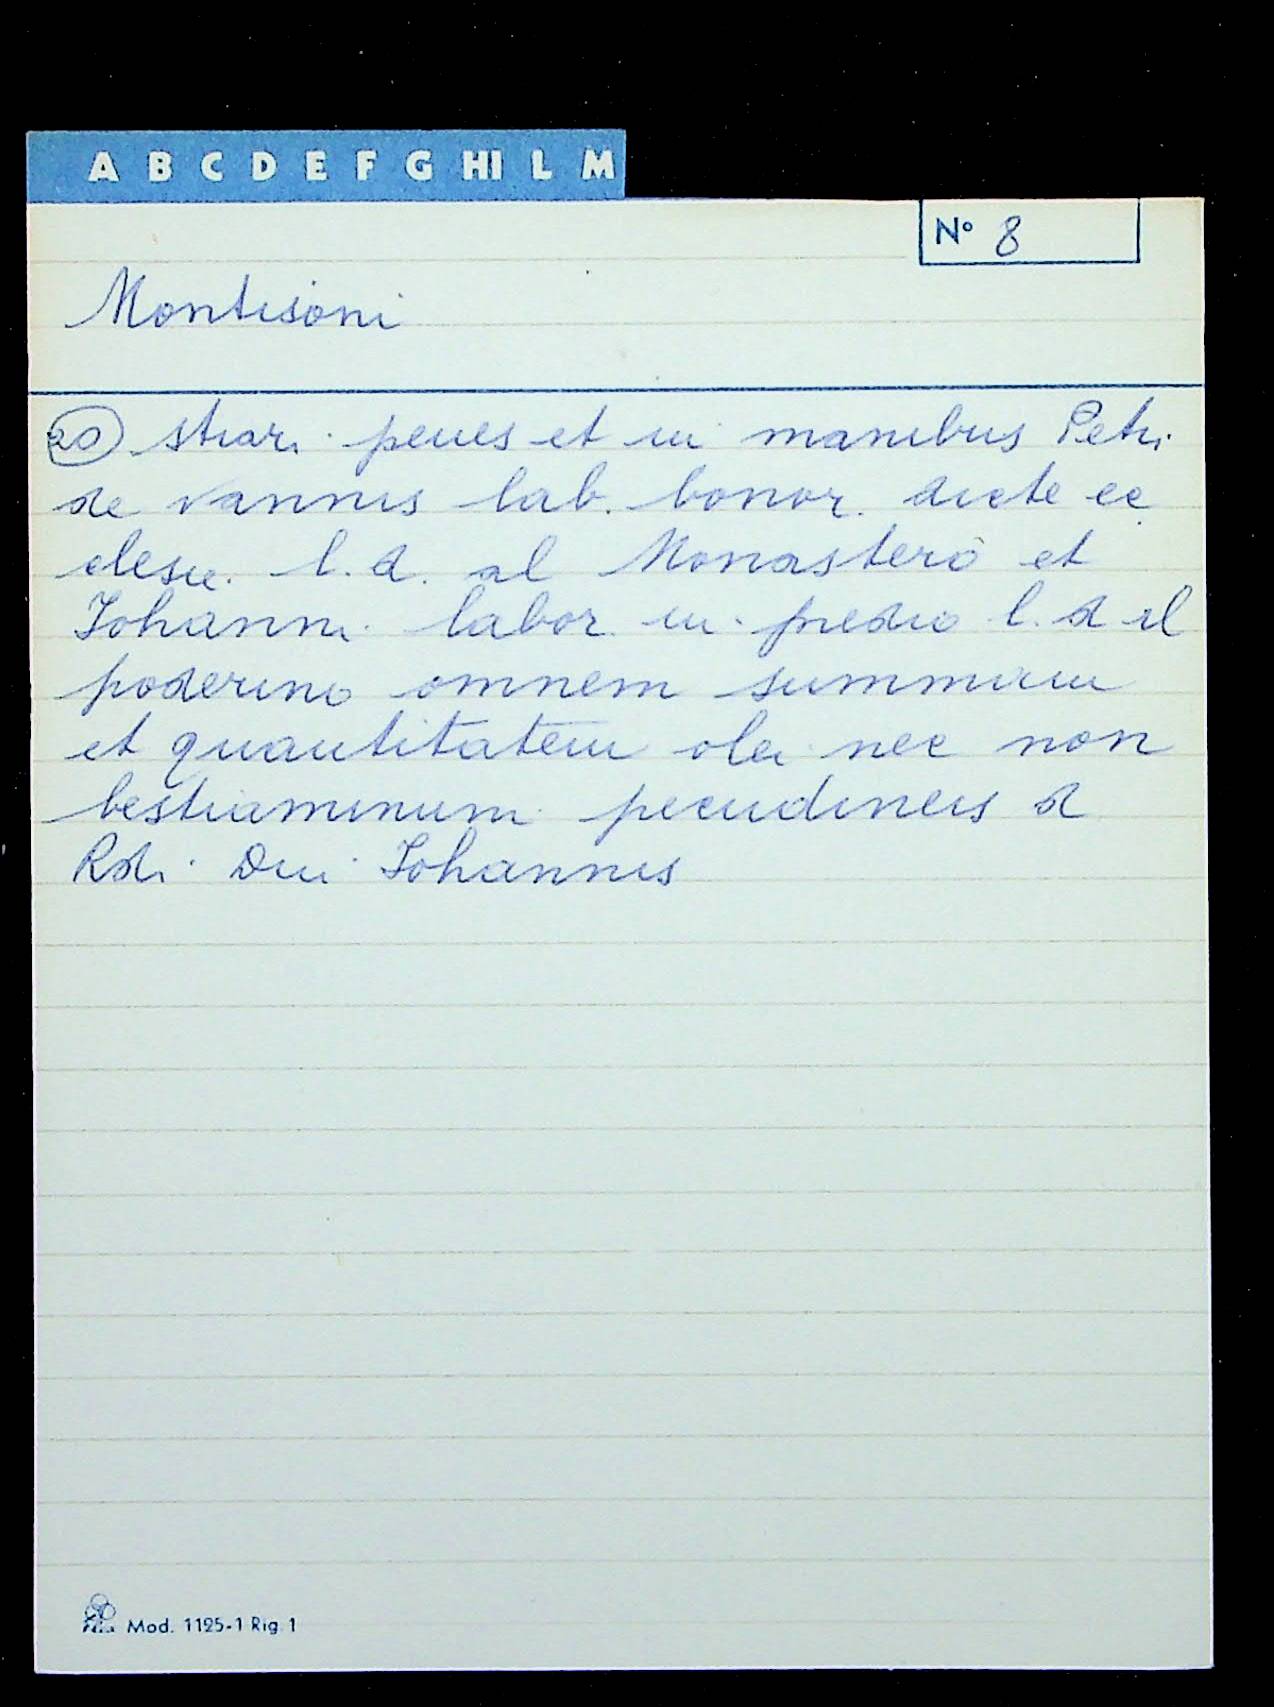 A B C D E F G HI L M
N° 8
Montisoni
20 stiari penes et in manibus Petri
de Vannis lab. bonor. dicte ec
clesie. l. d. al Monastero et
Johanni labor. in predio l. d il
poderino omnem summam
et quantitatem olei nec non
bestiaminum pecudineis d
Rdi. Dni. Johannis
Mod. 1125-1 Rig. 1